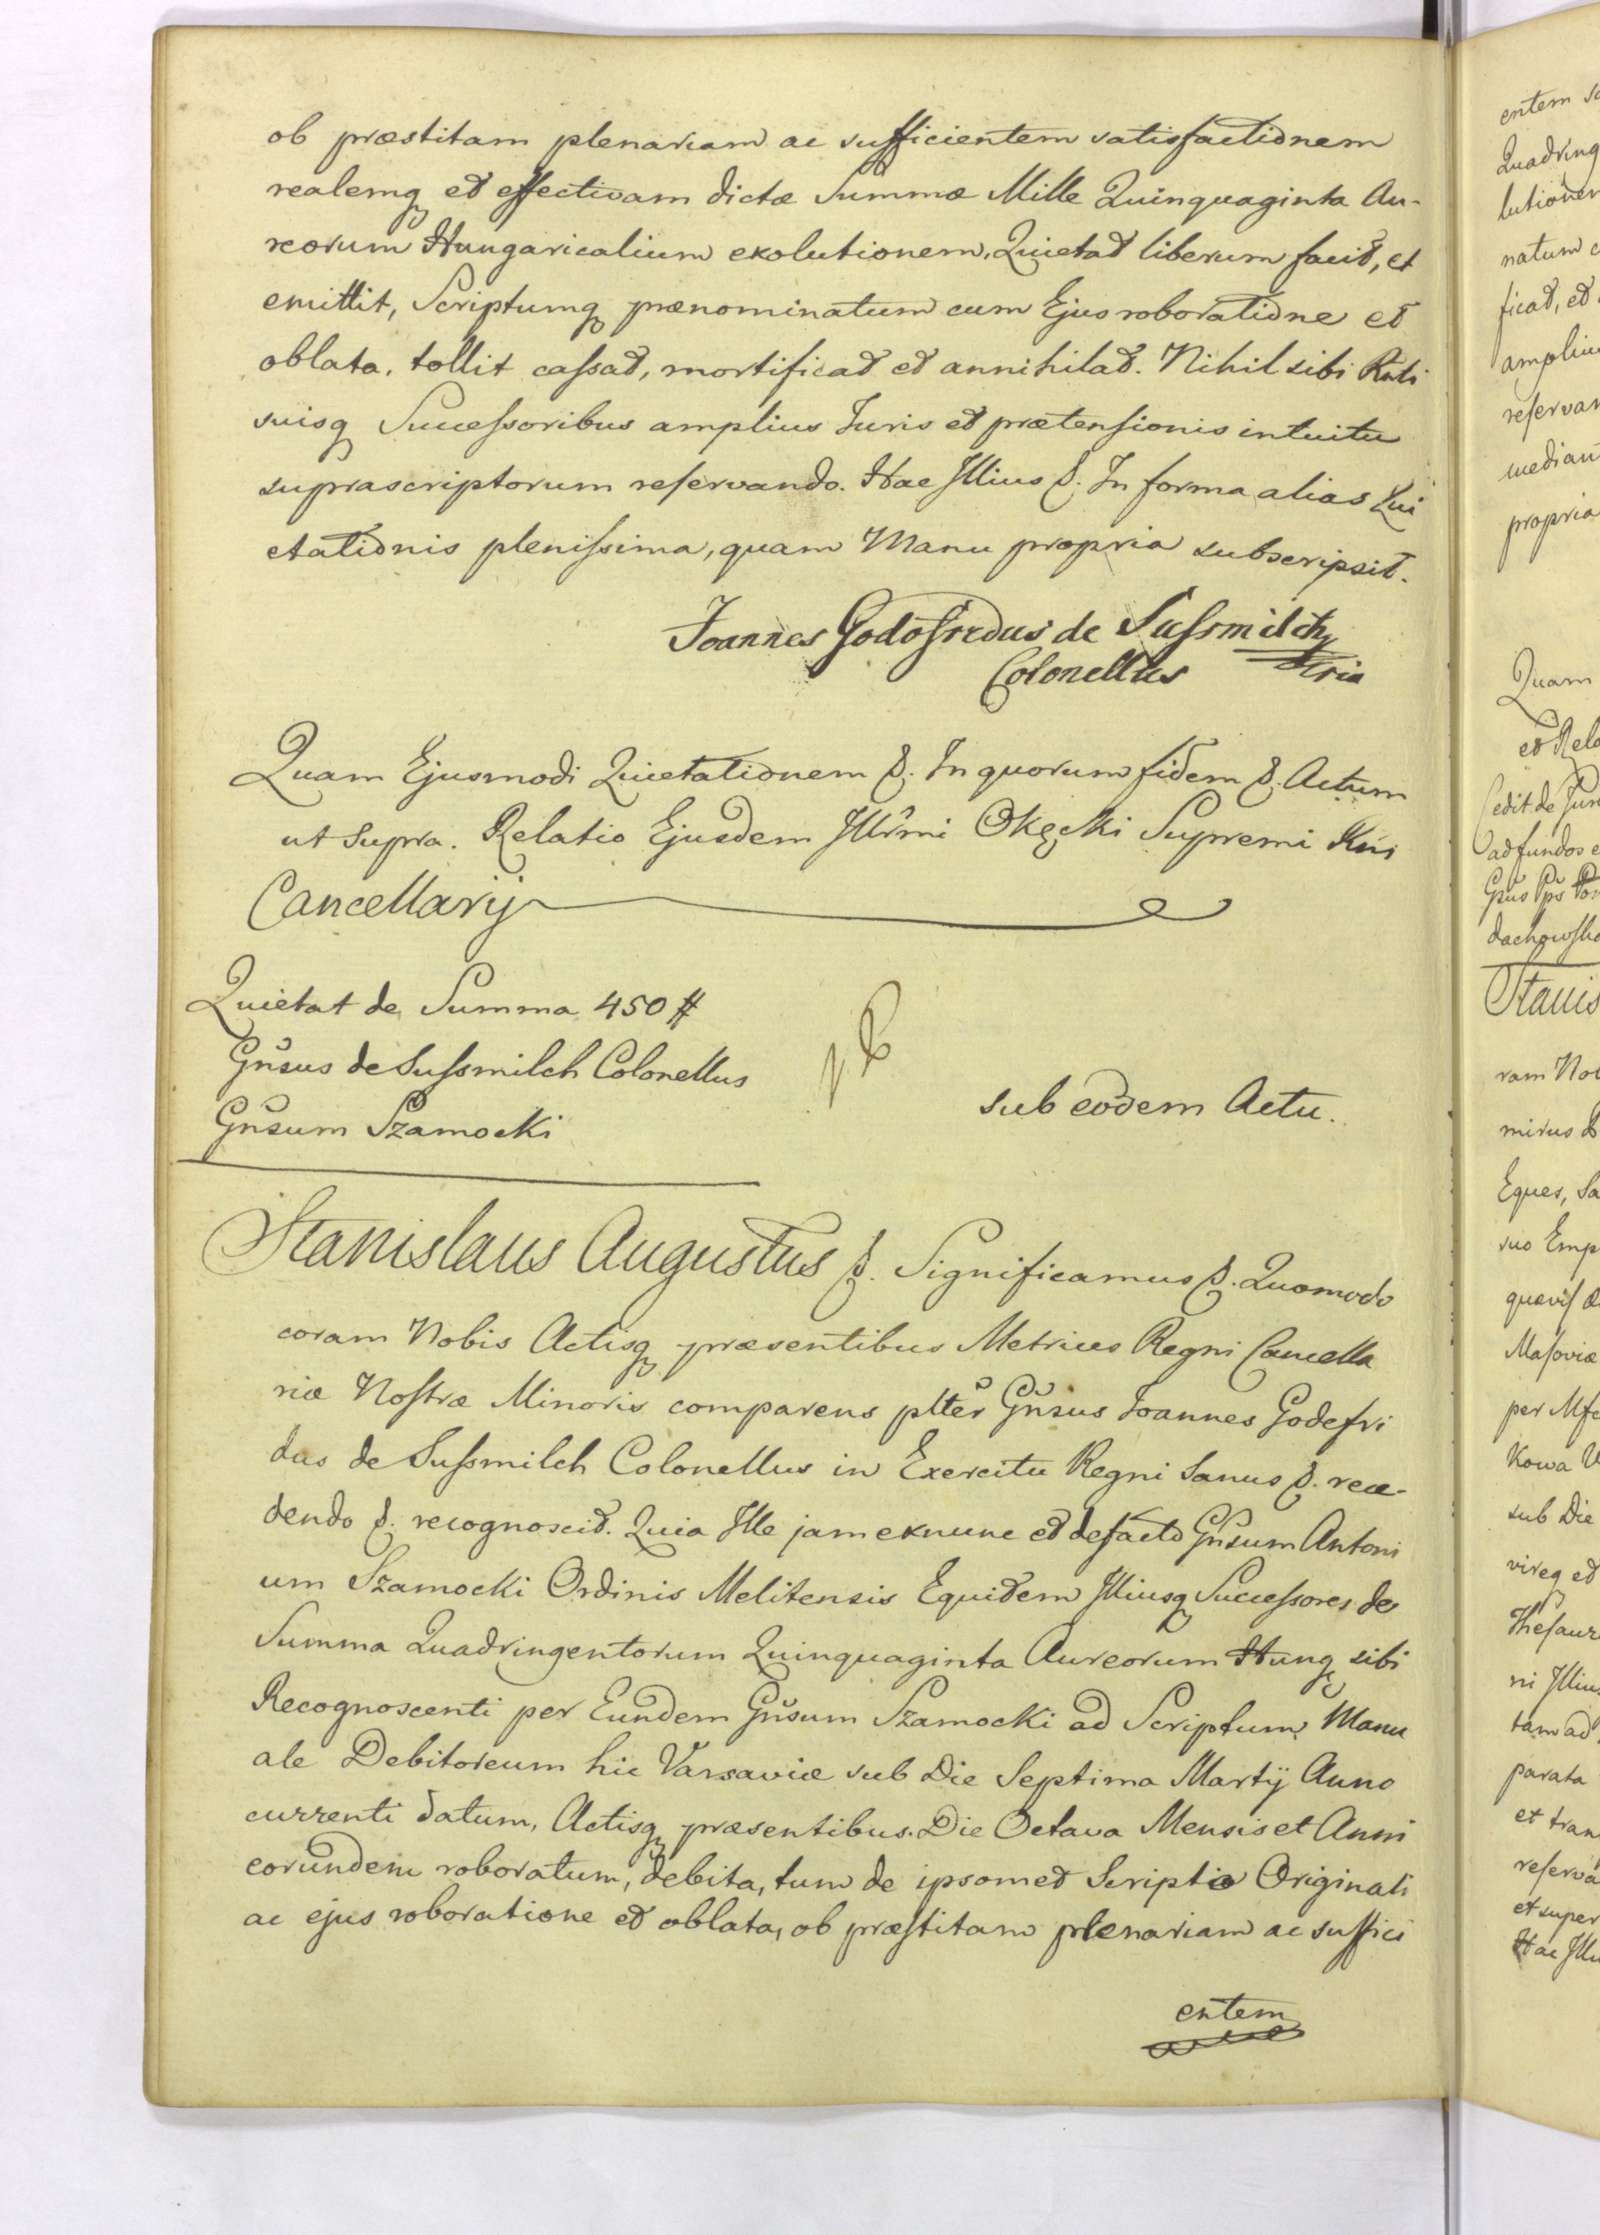 ob præstitam plenariam ac sufficientem satisfactionem
realemq et effectivam dictæ Summæ Mille Quinquaginta Au-
reorum Hungaricalium exolutionem, Quietat liberum facit, et
emittit, Scriptumq prænominatum cum Ejus roboratione et
oblata, tollit cassat, mortificat et annihilat. Nihil sibi Rnti
suisq Successoribus amplius Juris et prætensionis intuitu
suprascriptorum reservando. Hac Illius &. In forma alias Qui
etationis plenissima, quam Manu propria subscripsit.
Joannes Godofredus de Sussmilch
Colonellus
Quam Ejusmodi Quietationem &. In quorum fidem &. Actum
ut supra. Relatio Ejusdem Illrmi Okęcki Supremi Rni
Cancellarij
Quietat de Summa 450 #
Gnsus de Sussmilch Colonellus
Gnsum Szamocki
sub eodem Actu.
Stanislaus Augustus &. Significamus &. Quomodo
coram Nobis Actisq præsentibus Metrices Regni Cancella
riæ Nostræ Minoris comparens plter Gnsus Joannes Godefri
dus de Sussmilch Colonellus in Exercitu Regni Sanus &. rece-
dendo &. recognoscit. Quia Ille jam exnunc et defacto Gnsum Antoni
um Szamocki Ordinis Melitensis Equidem Illiusq Successores de
Summa Quadringentorum Quinquaginta Aureorum Hung sibi
Recognoscenti per Eundem Gnsum Szamocki ad Scriptum Manu
ale Debitoreum hic Varsaviæ sub Die Septima Martij Anno
currenti datum, Actisq præsentibus. Die Octava Mensis et Anni
eorundem roboratum, debita, tum de ipsomet Scripto Originali
ac ejus roboratione et oblata, ob præstitam plenariam ac suffici
entem